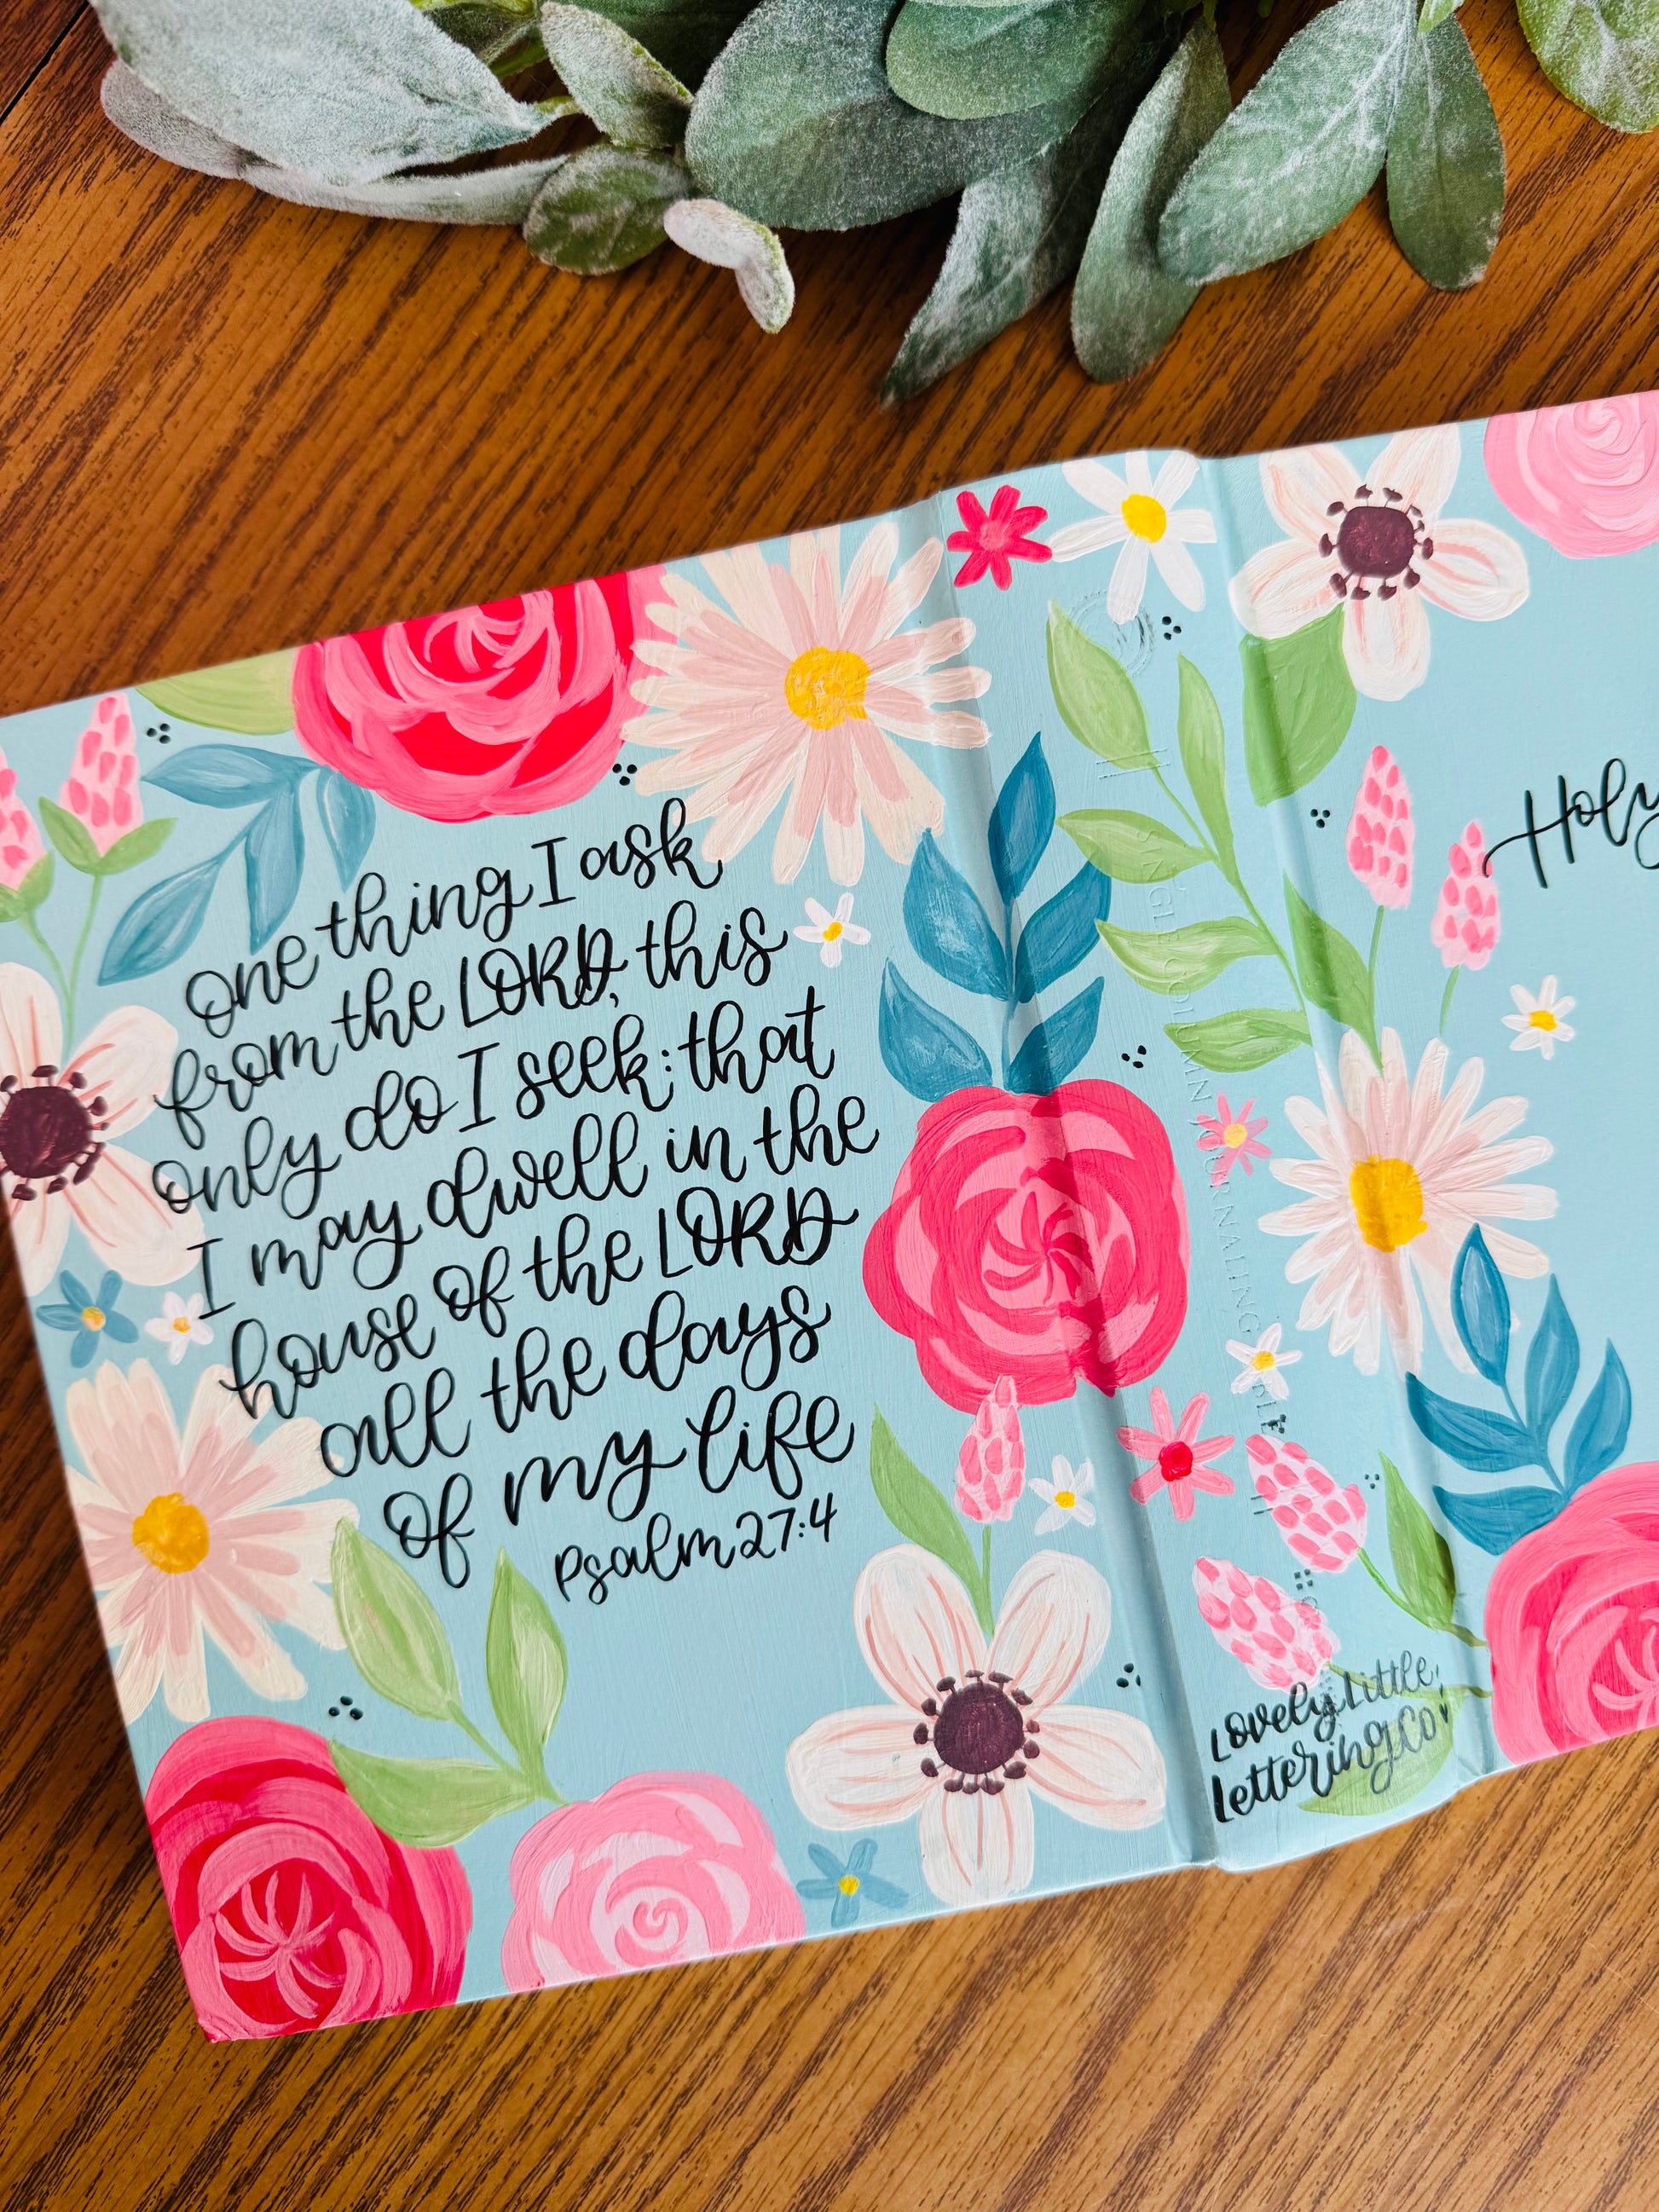 one thing I ask
from the LORD, this
only do I seek: that
I may dwell in the
house of the LORD
all the days
of my life
Psalm 27:4
SINGLE COLUMN JOURNALING BIBLE
Lovely Little
Lettering Co
Holy